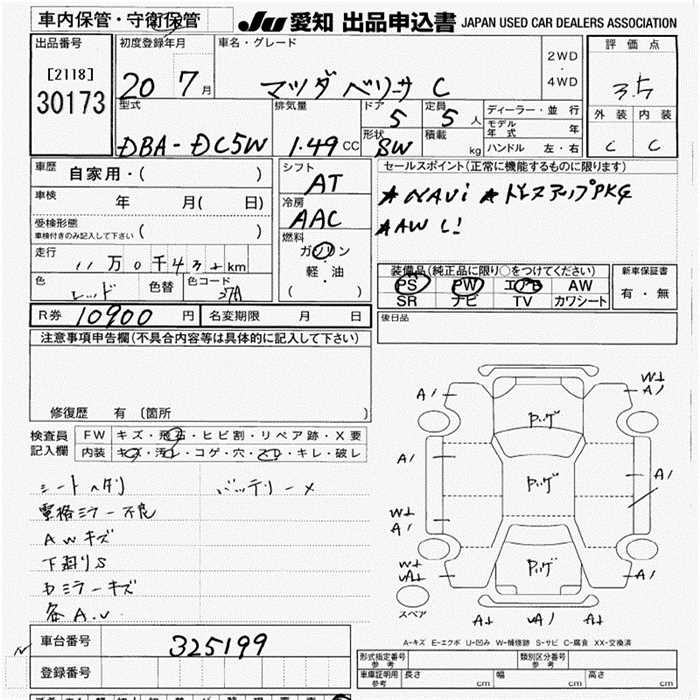 車内保管・守衛保管
JU 愛知 出品申込書 JAPAN USED CAR DEALERS ASSOCIATION
出品番号
[2118]
30173
初度登録年月
20 7月
車名・グレード
マツダ ベリーサ C
2WD
・
4WD
評価点
3.5
外装 内装
C C
型式
DBA-DC5W
排気量
1.49 CC
ドア
5
定員
5人
形状
SW
積載
kg
ディーラー・並行
モデル年式 年
ハンドル 左・右
車歴
自家用・( )
車検
年 月( 日)
受検形態
車検付きのみ記入して下さい ( )
走行
11万0千4 km
色
レッド
色替
色コード
27A
シフト
AT
冷房
AAC
燃料
ガソリン
軽・油
( )
セールスポイント(正常に機能するものに限ります)
★NAVi ★ドレスアップPKG
★AW
装備品(純正品に限り○をつけてください)
PS PW エアB AW
SR ナビ TV カワシート
新車保証書
有・無
R券 10900 円
名変期限 月 日
後日品
注意事項申告欄(不具合内容等は具体的に記入して下さい)
修復歴 有 〔箇所 〕
検査員
記入欄
FW キズ・飛石・ヒビ割・リペア跡・X要
内装 キズ・汚レ・コゲ・穴・スレ・キレ・破レ
シートヘタリ バッテリーメ
電格ミラー不良
AWキズ
下廻りS
ミラーキズ
各A.U
A1
W
A1
A1
A1
W
A1
W
A1
A1
スペア
A UA1 A
A-キズ E-エクボ U-凹み W-補修跡 S-サビ C-腐食 XX-交換済
車台番号
325199
登録番号
形式指定番号
参考
類別区分番号
参考
車庫証明用
参考
長さ cm 幅 cm 高さ cm